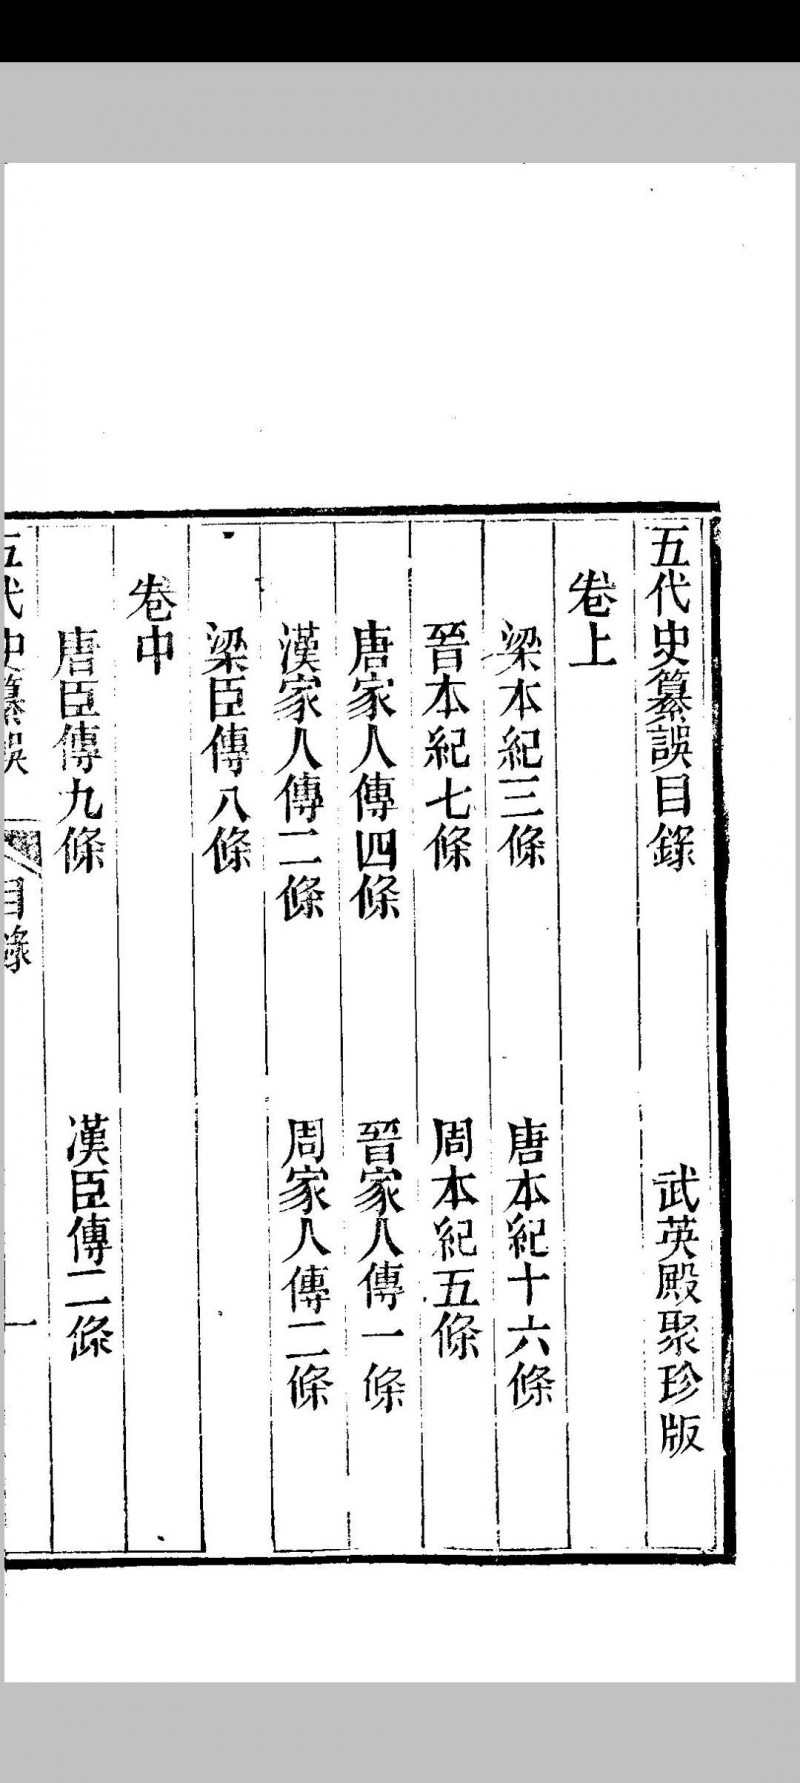 五代史纂誤目錄 武英殿聚珍版
卷上
梁本紀三條 唐本紀十六條
晉本紀七條 周本紀五條
唐家人傳四條 晉家人傳一條
漢家人傳二條 周家人傳二條
梁臣傳八條
卷中
唐臣傳九條 漢臣傳二條
五代史纂誤 目錄 一